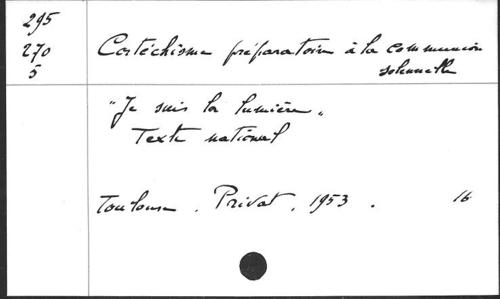 295
270
5
Catéchisme préparatoire à la communion
solennelle
"Je suis la lumière"
Texte national
Toulouse. Privat, 1953. 16